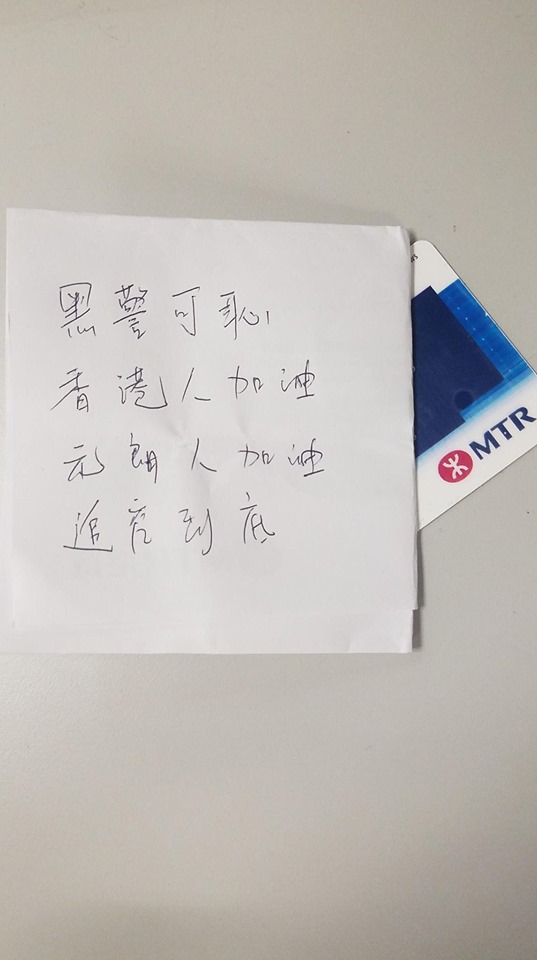 黑警可恥
香港人加油
元朗人加油
追究到底
MTR